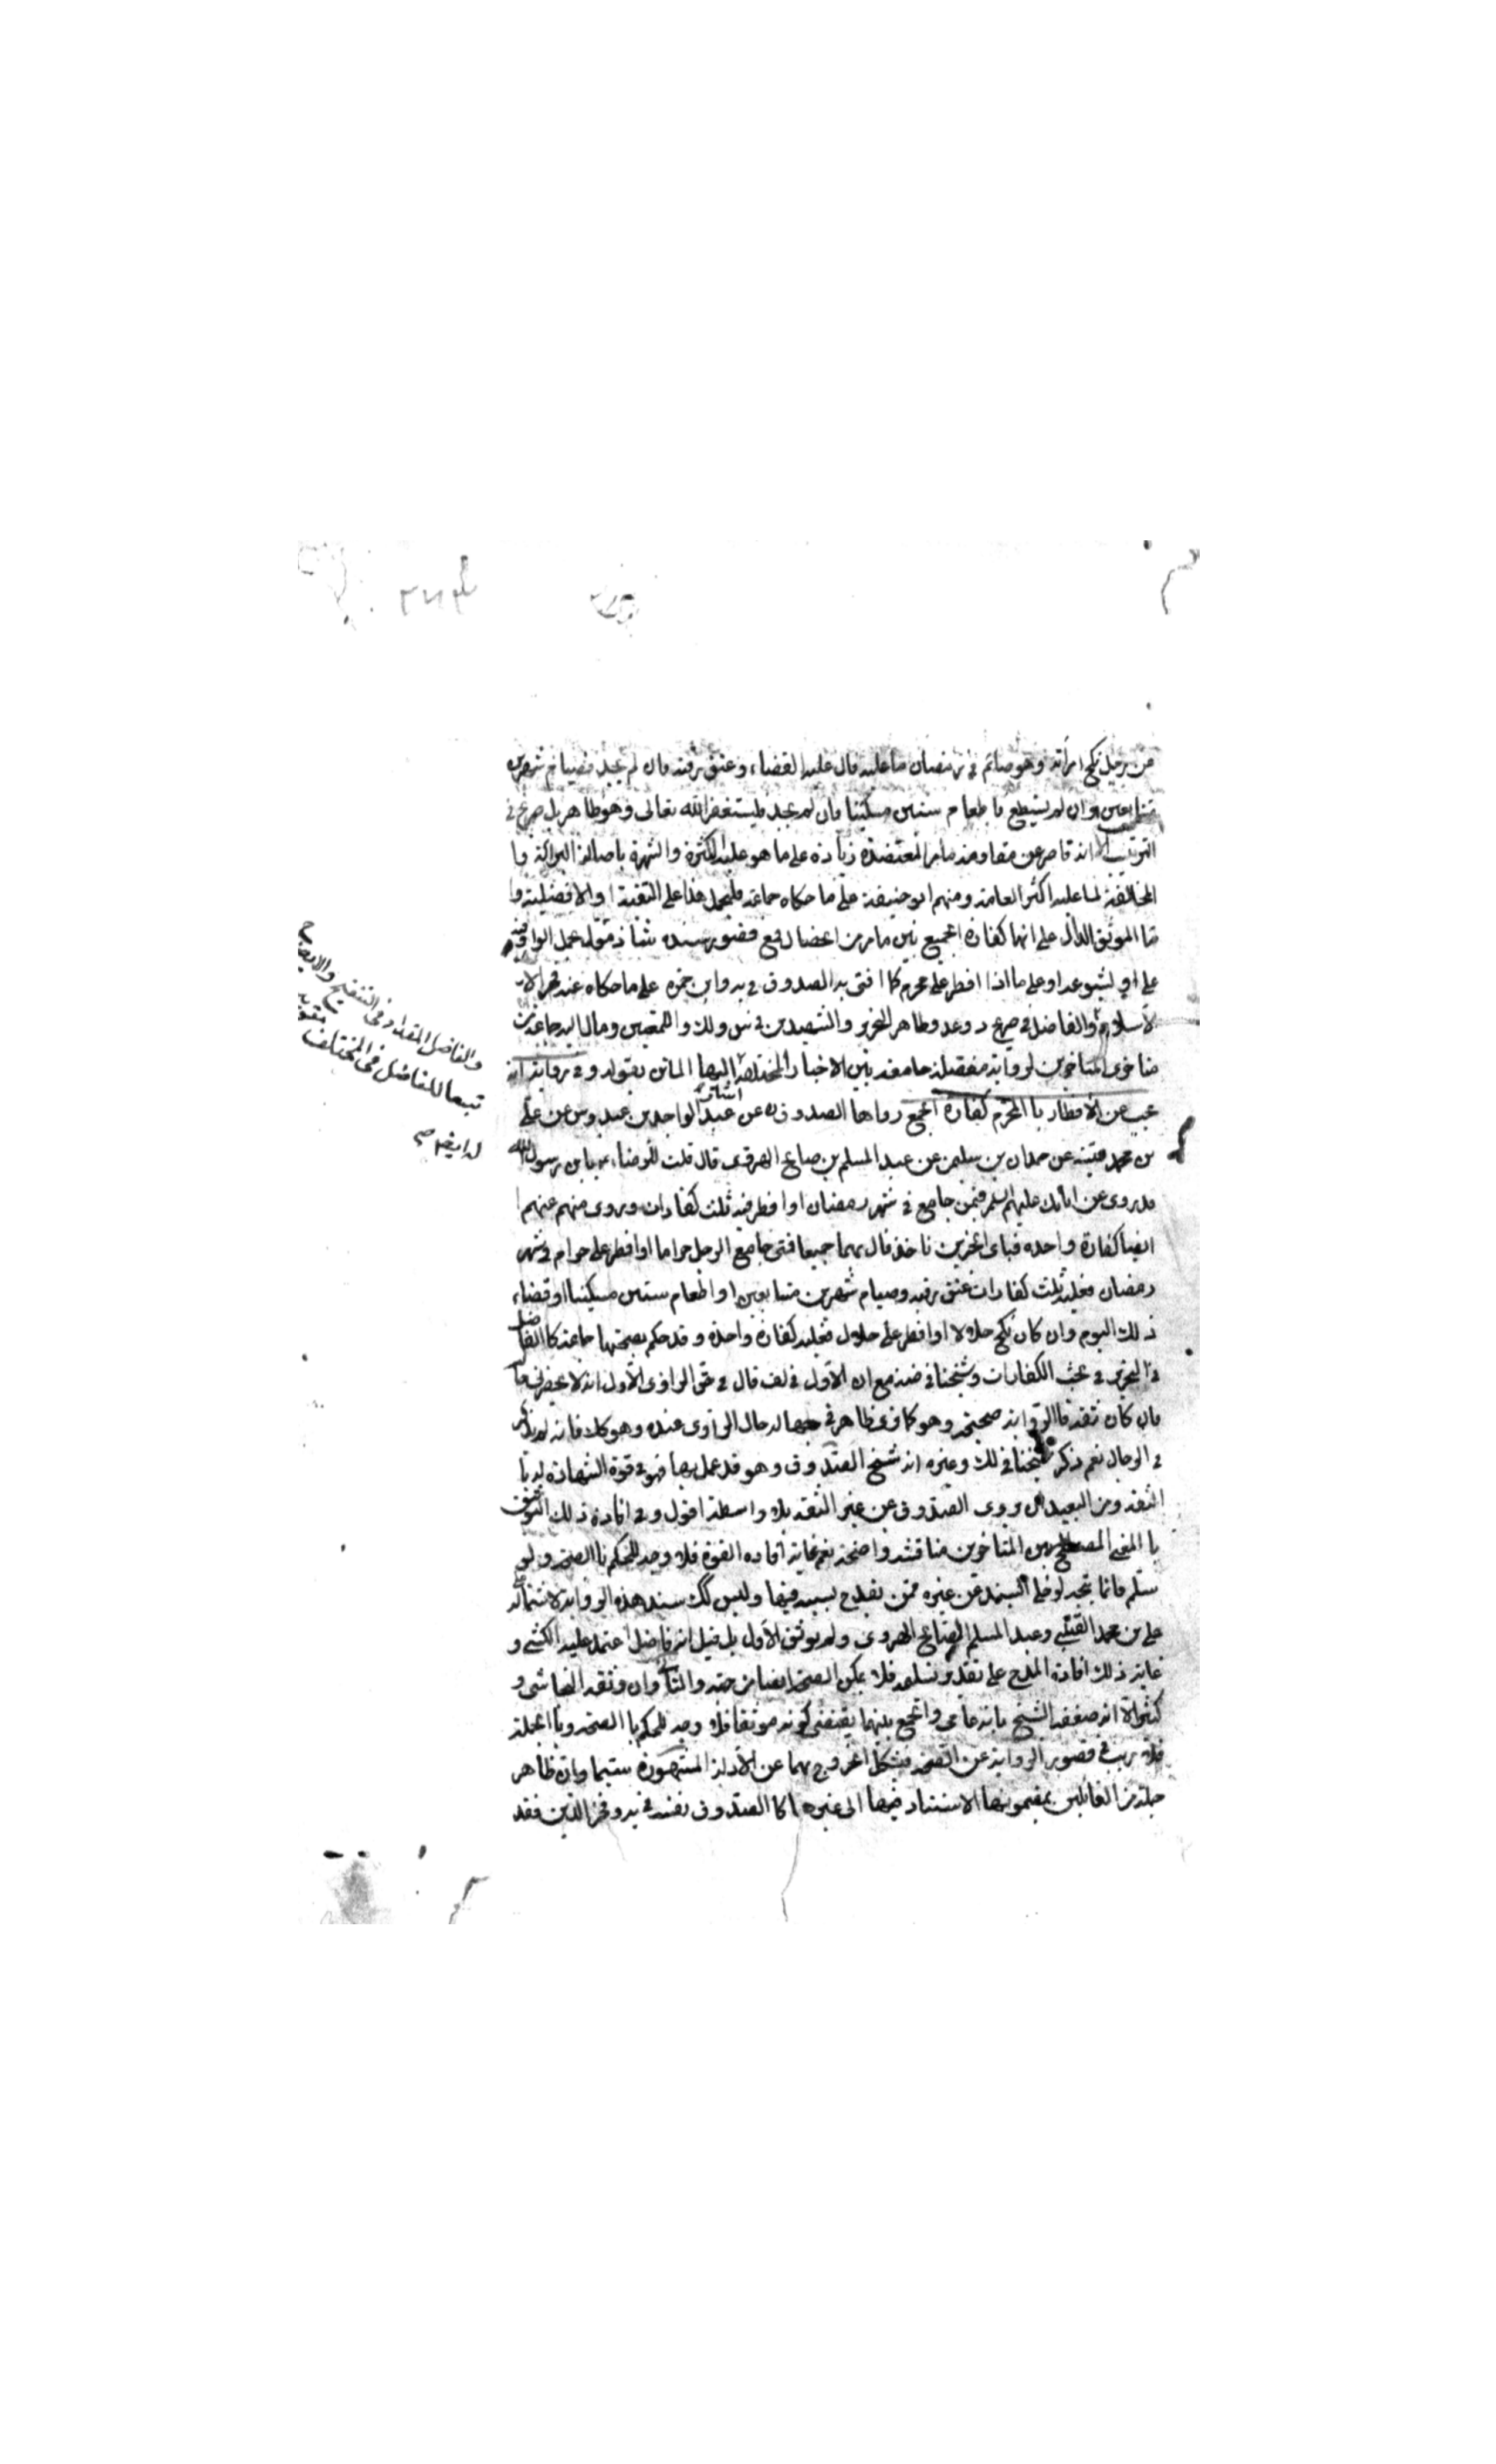 عن رجل نكح امرأته وهو صائم في رمضان ما عليه قال عليه القضاء وعتق رقبة فان لم يجد فصيام شهرين
متتابعين وان لم يستطع فاطعام ستين مسكينا فان لم يجد فليستغفر الله تعالى وهو ظاهر بل صريح في
الترتيب الا انه قاصر عن مقاومة مامر المعتضدة زيادة على ما هو عليه الكثرة والشهرة باصالة البرائة وا
المخالفة لما عليه اكثر العامة ومنهم ابو حنيفة على ما حكاه جماعة فليحمل هذا على التقية او الافضلية وا
ما الموثق الدال على انها كفارة الجميع بين مامر من الخصال فمع قصور سنده شاذ مؤل بحمل الواو فيه
على او لشيوعه او على ما اذا افطر على محرم كما افتى به الصدوق في يه وابن حمزة على ما حكاه عنه فخر الا
لاسلام والفاضل في صريح د وعد وظاهر التحرير والشهيدين في س ولك واللمعتين ومال اليه جماعة من
متاخرى المتاخرين لرواية مفصلة جامعة بين الاخبار المختلفة اشار اليها الماتن بقوله وفي رواية انه
يجب عن الافطار بالمحرم كفارة الجمع رواها الصدوق عن عبد الواحد بن عبدوس عن على
بن محمد قتيبة عن حمدان بن سليمن عن عبد السلم بن صالح الهروى قال قلت للرضاء يابن رسول الله
قد روى عن ابائك عليهم السلم فيمن جامع في شهر رمضان او افطر فيه ثلث كفارات وروى منهم عنهم
ايضا كفارة واحدة فباى الخبرين ناخذ قال بهما جميعا فتى جامع الرجل حراما او افطر على حرام في شهر
رمضان فعليه ثلث كفارات عتق رقبة وصيام شهرين متتابعين واطعام ستين مسكينا وقضاء
ذلك اليوم وان كان نكح حلالا او افطر على حلال فعليه كفارة واحدة وقد حكم بصحتها جماعة كالفاضل
في التحرير في بحث الكفارات وشيخنا في ضة مع ان الاول في لف قال في حق الراوى الاول انه لا يحضرنى حا
فان كان ثقة فالرواية صحيحة وهو كما ترى ظاهر في جهالة حال الراوى عنده وهو كك فانه لم يذكر
في الرجال نعم ذكر شيخنا في لك وغيره انه شيخ الصدوق وهو قد عمل بها فهو في قوة الشهادة له با
الثقة ومن البعيد ان يروى الصدوق عن غير الثقة بلا واسطة اقول وفي افادة ذلك التوثيق
بالمعنى المصطلح بين المتاخرين مناقشة واضحة نعم غايته افادة القوة فلا وجه للحكم بالصحة ولو
سلم فانما يتجه لو خلى السند عن غيره ممن يقدح بسببه فيها وليس كك سند هذه الرواية لاشتماله على
على بن محمد القتيبى وعبد السلم الصالح الهروى ولم يوثق الاول بل قيل انه فاضل اعتمد عليه الكشى و
غاية ذلك افادة المدح على تقدير تسلمه فلا يمكن الصحة ايضا من جهته والثانى وان وثقه النجاشى و
كثير الا انه ضعفه الشيخ بانه عامى والجمع بينهما يقتضى كونه موثقا فلا وجه للحكم بالصحة وبالجملة
فلا ريب في قصور الرواية عن الصحة فيشكل الخروج بهما عن الادلة المشهورة سيما وان ظاهر
جملة من القائلين بمضمونها الاستناد فيها الى غيرها كالصدوق نفسه في يه وفخر الدين فقد
والفاضل المقداد في التنقيح
تبعا للفاضل في المختلف